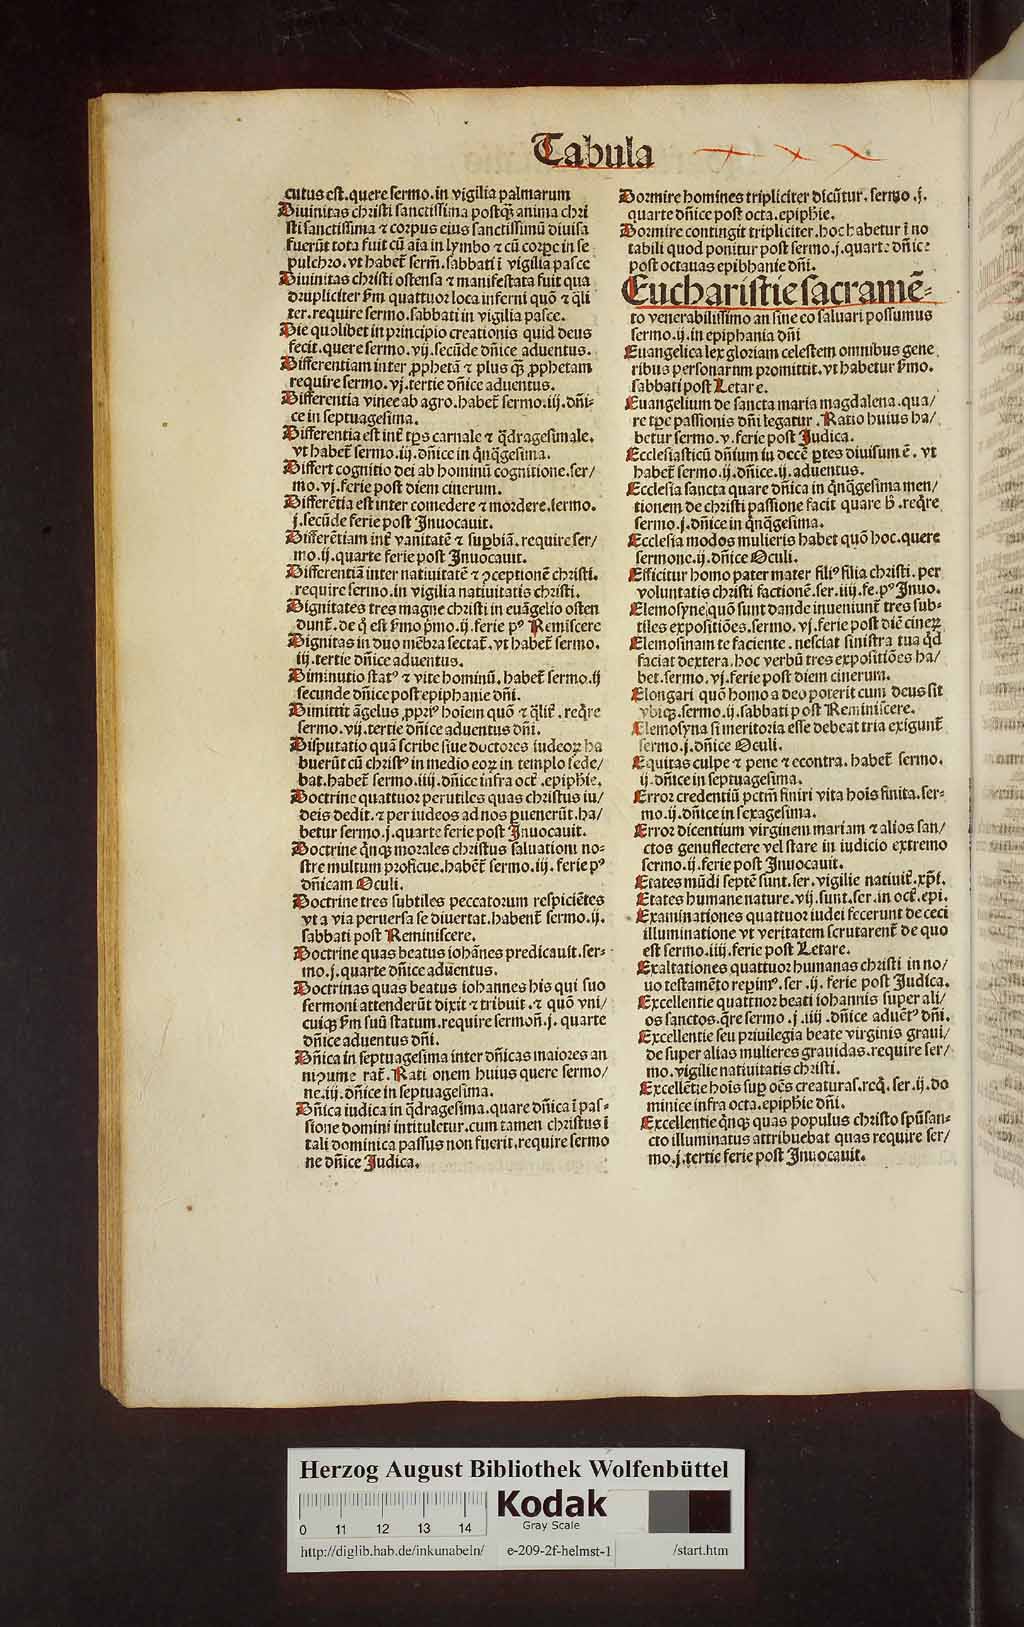 Tabula
cutus est.quere sermo.in vigilia palmarum
Diuinitas christi sanctissima postq̄ꝫ anima chri
sti sanctissima ⁊ corpus eius sanctissimū diuisa
fuerūt tota fuit cū aīa in lymbo ⁊ cū corpe in se
pulchro.vt habet᷑ serm̄.sabbati ī vigilia pasce
Diuinitas christi ostensa ⁊ manifestata fuit qua
drupliciter ẜm quattuor loca inferni quō ⁊ q̄li
ter.require sermo.sabbati in vigilia pasce.
Die quolibet in principio creationis quid deus
fecit.quere sermo.vij.secūde dn̄ice aduentus.
Differentiam inter ꝓphetā ⁊ plus q̄ꝫ ꝓphetam
require sermo.vj.tertie dn̄ice aduentus.
Differentia vinee ab agro.habet᷑ sermo.iij.dn̄i-
ce in septuagesima.
Differentia est int̄ tp̄s carnale ⁊ q̄dragesimale.
vt habet᷑ sermo.iij.dn̄ice in q̄nq̄gesima.
Differt cognitio dei ab hominū cognitione.ser/
mo.vj.ferie post diem cinerum.
Differētia est inter comedere ⁊ mordere.sermo.
j.secūde ferie post Inuocauit.
Differētiam int̄ vanitatē ⁊ suꝑbiā.require ser/
mo.ij.quarte ferie post Inuocauit.
Differentiā inter natiuitatē ⁊ ꝯceptionē christi.
require sermo.in vigilia natiuitatis christi.
Dignitates tres magne christi in euāgelio osten
dunt᷑.de q̄ est ẜmo p̄mo.ij.ferie pꝰ Remiscere
Dignitas in duo mēbra sectat᷑.vt habet᷑ sermo.
iij.tertie dn̄ice aduentus.
Diminutio statꝰ ⁊ vite hominū.habet᷑ sermo.ij
secunde dn̄ice post epiphanie dn̄i.
Dimittit āgelus ꝓpriꝰ hoīem quō ⁊ q̄lit᷑.req̄re
sermo.vij.tertie dn̄ice aduentus dn̄i.
Disputatio quā scribe siue doctores iudeoꝝ ha
buerūt cū christꝰ in medio eoꝝ in templo sede/
bat.habet᷑ sermo.iiij.dn̄ice infra oct᷑.epiph̄ie.
Doctrine quattuor perutiles quas christus iu/
deis dedit.⁊ per iudeos ad nos ꝑuenerūt.ha/
betur sermo.j.quarte ferie post Inuocauit.
Doctrine q̄nqꝫ morales christus saluationi no-
stre multum proficue.habet᷑ sermo.iij.ferie pꝰ
dn̄icam Oculi.
Doctrine tres subtiles peccatorum respiciētes
vt a via peruersa se diuertat.habent᷑ sermo.ij.
sabbati post Reminiscere.
Doctrine quas beatus iohānes predicauit.ser-
mo.j.quarte dn̄ice aduentus.
Doctrinas quas beatus iohannes his qui suo
sermoni attenderūt dixit ⁊ tribuit.⁊ quō vni/
cuiqꝫ ẜm suū statum.require sermoñ.j.quarte
dn̄ice aduentus dn̄i.
Dn̄ica in septuagesima inter dn̄icas maiores an
rat᷑.Rati onem huius quere sermo/
ne.iij.dn̄ice in septuagesima.
Dn̄ica iudica in q̄dragesima.quare dn̄ica ī pas-
sione domini intituletur.cum tamen christus ī
tali dominica passus non fuerit.require sermo
ne dn̄ice Judica.
Dormire homines tripliciter dicūtur.sermo.j.
quarte dn̄ice post octa.epiph̄ie.
Dormire contingit tripliciter.hoc habetur ī no
tabili quod ponitur post sermo.j.quarte dn̄ice
post octauas epibhanie dn̄i.
Eucharistie sacramē-
to venerabilissimo an sine eo saluari possumus
sermo.ij.in epiphania dn̄i
Euangelica lex gloriam celestem omnibus gene
ribus personarum promittit.vt habetur ẜmo.
sabbati post Letare.
Euangelium de sancta maria magdalena.qua/
re tp̄e passionis dn̄i legatur.Ratio huius ha/
betur sermo.v.ferie post Judica.
Ecclesiasticū dn̄ium in decē ꝑtes diuisum ē.vt
habet᷑ sermo.ij.dn̄ice.ij.aduentus.
Ecclesia sancta quare dn̄ica in q̄nq̄gesima men/
tionem de christi passione facit quare h̄.req̄re
sermo.j.dn̄ice in q̄nq̄gesima.
Ecclesia modos mulieris habet quō hoc.quere
sermone.ij.dn̄ice Oculi.
Efficitur homo pater mater filiꝰ filia christi.per
voluntatis christi factionē.ser.iiij.fe.pꝰ Inuo.
Elemosyne quō sunt dande inueniunt᷑ tres sub-
tiles expositiōes.sermo.vj.ferie post diē cineꝝ
Elemosinam te faciente.nesciat sinistra tua q̄d
faciat dextera.hoc verbū tres expositiōes ha/
bet.sermo.vj.ferie post diem cinerum.
Elongari quō homo a deo poterit cum deus sit
vbiqꝫ.sermo.ij.sabbati post Reminiscere.
Elemosyna si meritoria esse debeat tria exigunt᷑
sermo.j.dn̄ice Oculi.
Equitas culpe ⁊ pene ⁊ econtra.habet᷑ sermo.
ij.dn̄ice in septuagesima.
Error credentiū pctm̄ finiri vita hoīs finita.ser-
mo.ij.dn̄ice in sexagesima.
Error dicentium virginem mariam ⁊ alios san/
ctos genuflectere vel stare in iudicio extremo
sermo.ij.ferie post Inuocauit.
Etates mūdi septē sunt.ser.vigilie natiuit᷑.xp̄i.
Etates humane nature.vij.sunt.ser.in oct᷑.epi.
Examinationes quattuor iudei fecerunt de ceci
illuminatione vt veritatem scrutarent᷑ de quo
est sermo.iiij.ferie post Letare.
Exaltationes quattuor humanas christi in no/
uo testamēto reperimꝰ.ser.ij.ferie post Judica.
Excellentie quattnor beati iohannis super ali/
os sanctos.q̄re sermo.j.iiij.dn̄ice aduētꝰ dn̄i.
Excellentie seu priuilegia beate virginis graui/
de super alias mulieres grauidas.require ser/
mo.vigilie natiuitatis christi.
Excellētie hoīs suꝑ oēs creaturas.req̄.ser.ij.do
minice infra octa.epiph̄ie dn̄i.
Excellentie q̄nqꝫ quas populus christo spūsan-
cto illuminatus attribuebat quas require ser/
mo.j.tertie ferie post Inuocauit.
Herzog August Bibliothek Wolfenbüttel
Kodak
Gray Scale
0 11 12 13 14
http://diglib.hab.de/inkunabeln/ e-209-2f-helmst-1 /start.htm